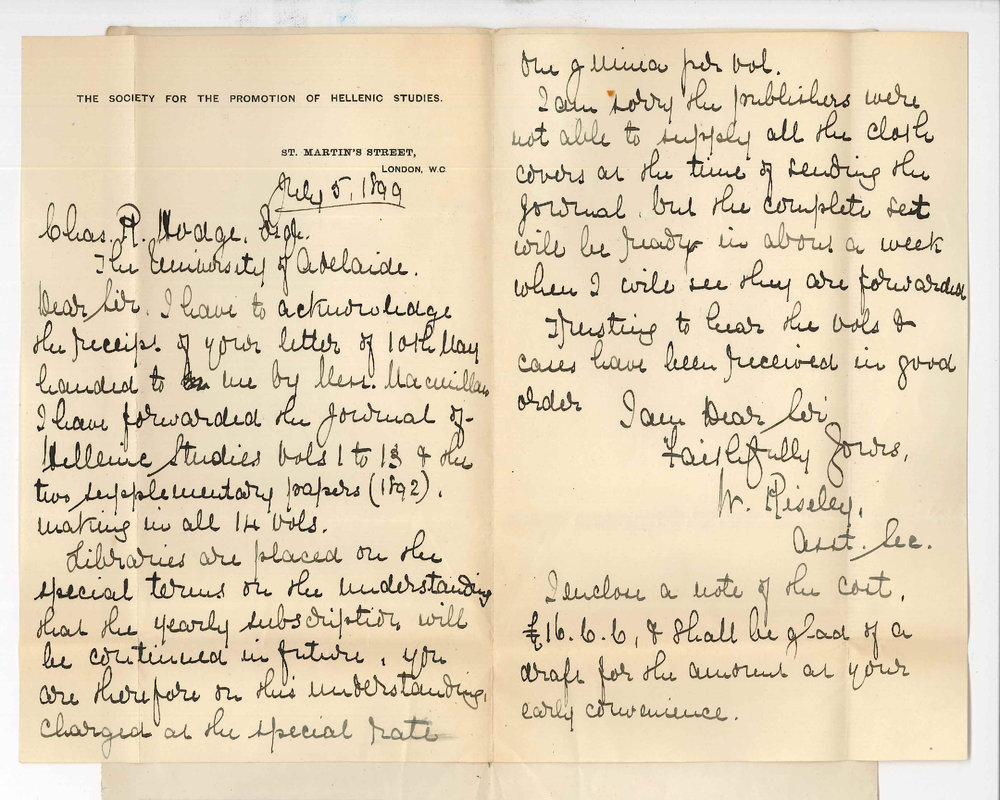 THE SOCIETY FOR THE PROMOTION OF HELLENIC STUDIES.
ST. MARTIN'S STREET,
LONDON, W.C.
July 5, 1899
Chas. R. Hodge, Esqr.
The University of Adelaide.
Dear Sir. I have to acknowledge
the receipt of your letter of 10th May
handed to me by Mess. Macmillan
I have forwarded the Journal of
Hellenic Studies Vols 1 to 13 & the
two supplementary papers (1892),
making in all 14 vols.
Libraries are placed on the
special terms on the understanding
that the yearly subscription will
be continued in future, you
are therefore on this understanding,
charged at the special rate
one guinea per vol.
I am sorry the publishers were
not able to supply all the cloth
covers at the time of sending the
Journal, but the complete set
will be ready in about a week
when I will see they are forwarded
Trusting to hear the vols &
cases have been received in good
order
I am Dear Sir
Faithfully Yours,
W. Riseley,
Asst. Sec.
I enclose a note of the cost,
£16.6.6, & shall be glad of a
draft for the amount at your
early convenience.